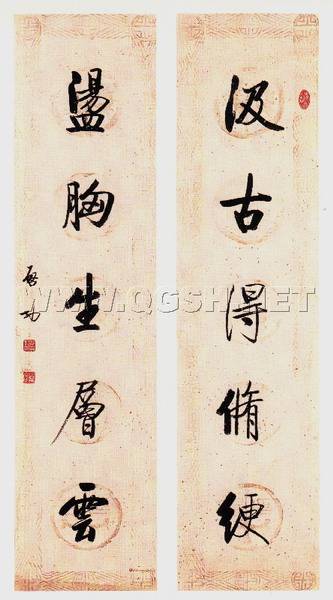 汲古得脩綆
盪胸生層雲
启功
WWW.QGSH.NET